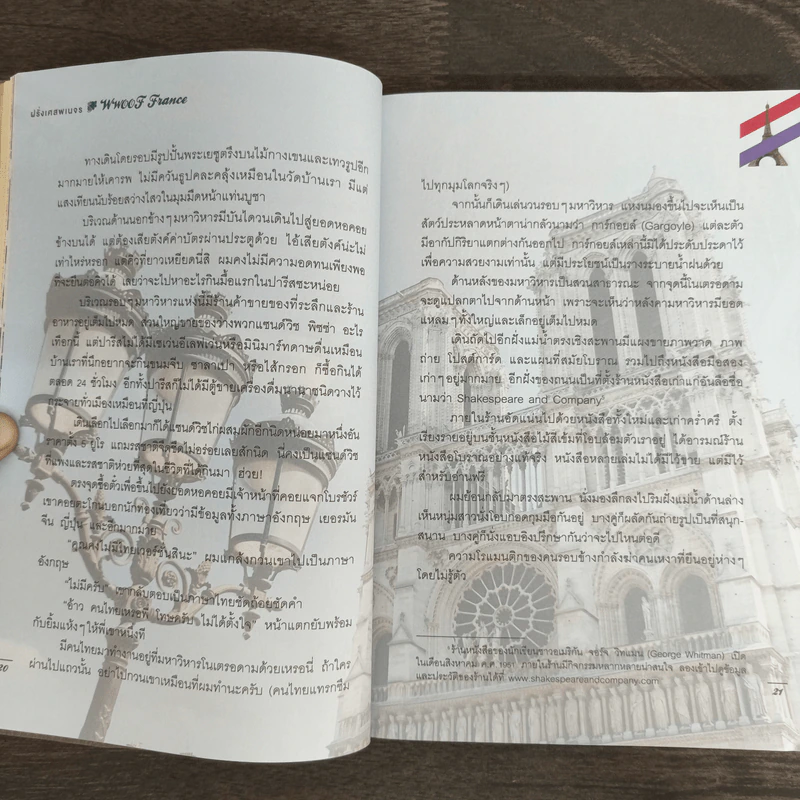 ฝรั่งเศสพเนจร WWOOF France
ทางเดินโดยรอบมีรูปปั้นพระเยซูตรึงบนไม้กางเขนและเทวรูปอีก
มากมายให้เคารพ ไม่มีควันธูปคละคลุ้งเหมือนในวัดบ้านเรา มีแต่
แสงเทียนนับร้อยสว่างไสวในมุมมืดหน้าแท่นบูชา
บริเวณด้านนอกข้างๆ มหาวิหารมีบันไดวนเดินไปสู่ยอดหอคอย
ข้างบนได้ แต่ต้องเสียตังค์ค่าบัตรผ่านประตูด้วย ไอ้เสียตังค์น่ะไม่
เท่าไหร่หรอก แต่คิวที่ยาวเหยียดนี่สิ ผมคงไม่มีความอดทนเพียงพอ
ที่จะยืนต่อคิวได้ เลยว่าจะไปหาอะไรกินมื้อแรกในปารีสซะหน่อย
บริเวณรอบๆ มหาวิหารแห่งนี้มีร้านค้าขายของที่ระลึกและร้าน
อาหารอยู่เต็มไปหมด ส่วนใหญ่ขายของว่างพวกแซนด์วิช พิซซ่า อะไร
เทือกนี้ แต่ปารีสไม่ได้มีเซเว่นอีเลฟเว่นหรือมินิมาร์ทดาษดื่นเหมือน
บ้านเราที่นึกอยากจะกินขนมจีบ ซาลาเปา หรือไส้กรอก ก็ซื้อกินได้
ตลอด 24 ชั่วโมง อีกทั้งปารีสก็ไม่ได้มีตู้ขายเครื่องดื่มนานาชนิดวางไว้
กระจายทั่วเมืองเหมือนที่ญี่ปุ่น
เดินเลือกไปเลือกมาก็ได้แซนด์วิชไก่ผสมผักอีกนิดหน่อยมาหนึ่งอัน
ราคาตั้ง 5 ยูโร แถมรสชาติจืดชืดไม่อร่อยเลยสักนิด นี่คงเป็นแซนด์วิช
ที่แพงและรสชาติห่วยที่สุดในชีวิตที่ได้กินมา ฮ่วย!
ตรงจุดซื้อตั๋วเพื่อขึ้นไปยังยอดหอคอยมีเจ้าหน้าที่คอยแจกโบรชัวร์
เขาคอยตะโกนบอกนักท่องเที่ยวว่ามีข้อมูลทั้งภาษาอังกฤษ เยอรมัน
จีน ญี่ปุ่น และอีกมากมาย
"คุณคงไม่มีไทยเวอร์ชั่นสินะ" ผมแกล้งกวนเขาไปเป็นภาษา
อังกฤษ
"ไม่มีครับ" เขากลับตอบเป็นภาษาไทยชัดถ้อยชัดคำ
"อ้าว คนไทยเหรอพี่ โทษครับ ไม่ได้ตั้งใจ" หน้าแตกยับพร้อม
กับยิ้มแห้งๆ ให้พี่เขาหนึ่งที
มีคนไทยมาทำงานอยู่ที่มหาวิหารโนเตรอดามด้วยเหรอนี่ ถ้าใคร
ผ่านไปแถวนั้น อย่าไปกวนเขาเหมือนที่ผมทำนะครับ (คนไทยแทรกซึม
20
ไปทุกมุมโลกจริงๆ)
จากนั้นก็เดินเล่นวนรอบๆ มหาวิหาร แหงนมองขึ้นไปจะเห็นเป็น
สัตว์ประหลาดหน้าตาน่ากลัวนามว่า การ์กอยล์ (Gargoyle) แต่ละตัว
มีอากัปกิริยาแตกต่างกันออกไป การ์กอยล์เหล่านี้มิได้ประดับประดาไว้
เพื่อความสวยงามเท่านั้น แต่มีประโยชน์เป็นรางระบายน้ำฝนด้วย
ด้านหลังของมหาวิหารเป็นสวนสาธารณะ จากจุดนี้โนเตรอดาม
จะดูแปลกตาไปจากด้านหน้า เพราะจะเห็นว่าหลังคามหาวิหารมียอด
แหลมๆ ทั้งใหญ่และเล็กอยู่เต็มไปหมด
เดินถัดไปอีกฝั่งแม่น้ำตรงเชิงสะพานมีแผงขายภาพวาด ภาพ
ถ่าย โปสต์การ์ด และแผนที่สมัยโบราณ รวมไปถึงหนังสือมือสอง
เก่าๆ อยู่มากมาย อีกฝั่งของถนนเป็นที่ตั้งร้านหนังสือเก่าแก่อันลือชื่อ
นามว่า Shakespeare and Company¹
ภายในร้านอัดแน่นไปด้วยหนังสือทั้งใหม่และเก่าคร่ำครึ ตั้ง
เรียงรายอยู่บนชั้นหนังสือไม้สีเข้มที่โอบล้อมตัวเราอยู่ ได้อารมณ์ร้าน
หนังสือโบราณอย่างแท้จริง หนังสือหลายเล่มไม่ได้มีไว้ขาย แต่มีไว้
สำหรับอ่านฟรี
ผมย้อนกลับมาตรงสะพาน นั่งมองลึกลงไปริมฝั่งแม่น้ำด้านล่าง
เห็นหนุ่มสาวนั่งโอบกอดกุมมือกันอยู่ บางคู่ก็ผลัดกันถ่ายรูปเป็นที่สนุก-
สนาน บางคู่ก็นั่งแอบอิงปรึกษากันว่าจะไปไหนต่อดี
ความโรแมนติกของคนรอบข้างกำลังฆ่าคนเหงาที่ยืนอยู่ห่างๆ
โดยไม่รู้ตัว
¹ ร้านหนังสือของนักเขียนชาวอเมริกัน จอร์จ วิทแมน (George Whitman) เปิด
ในเดือนสิงหาคม ค.ศ. 1951 ภายในร้านมีกิจกรรมหลากหลายน่าสนใจ ลองเข้าไปดูข้อมูล
และประวัติของร้านได้ที่ www.shakespeareandcompany.com
21